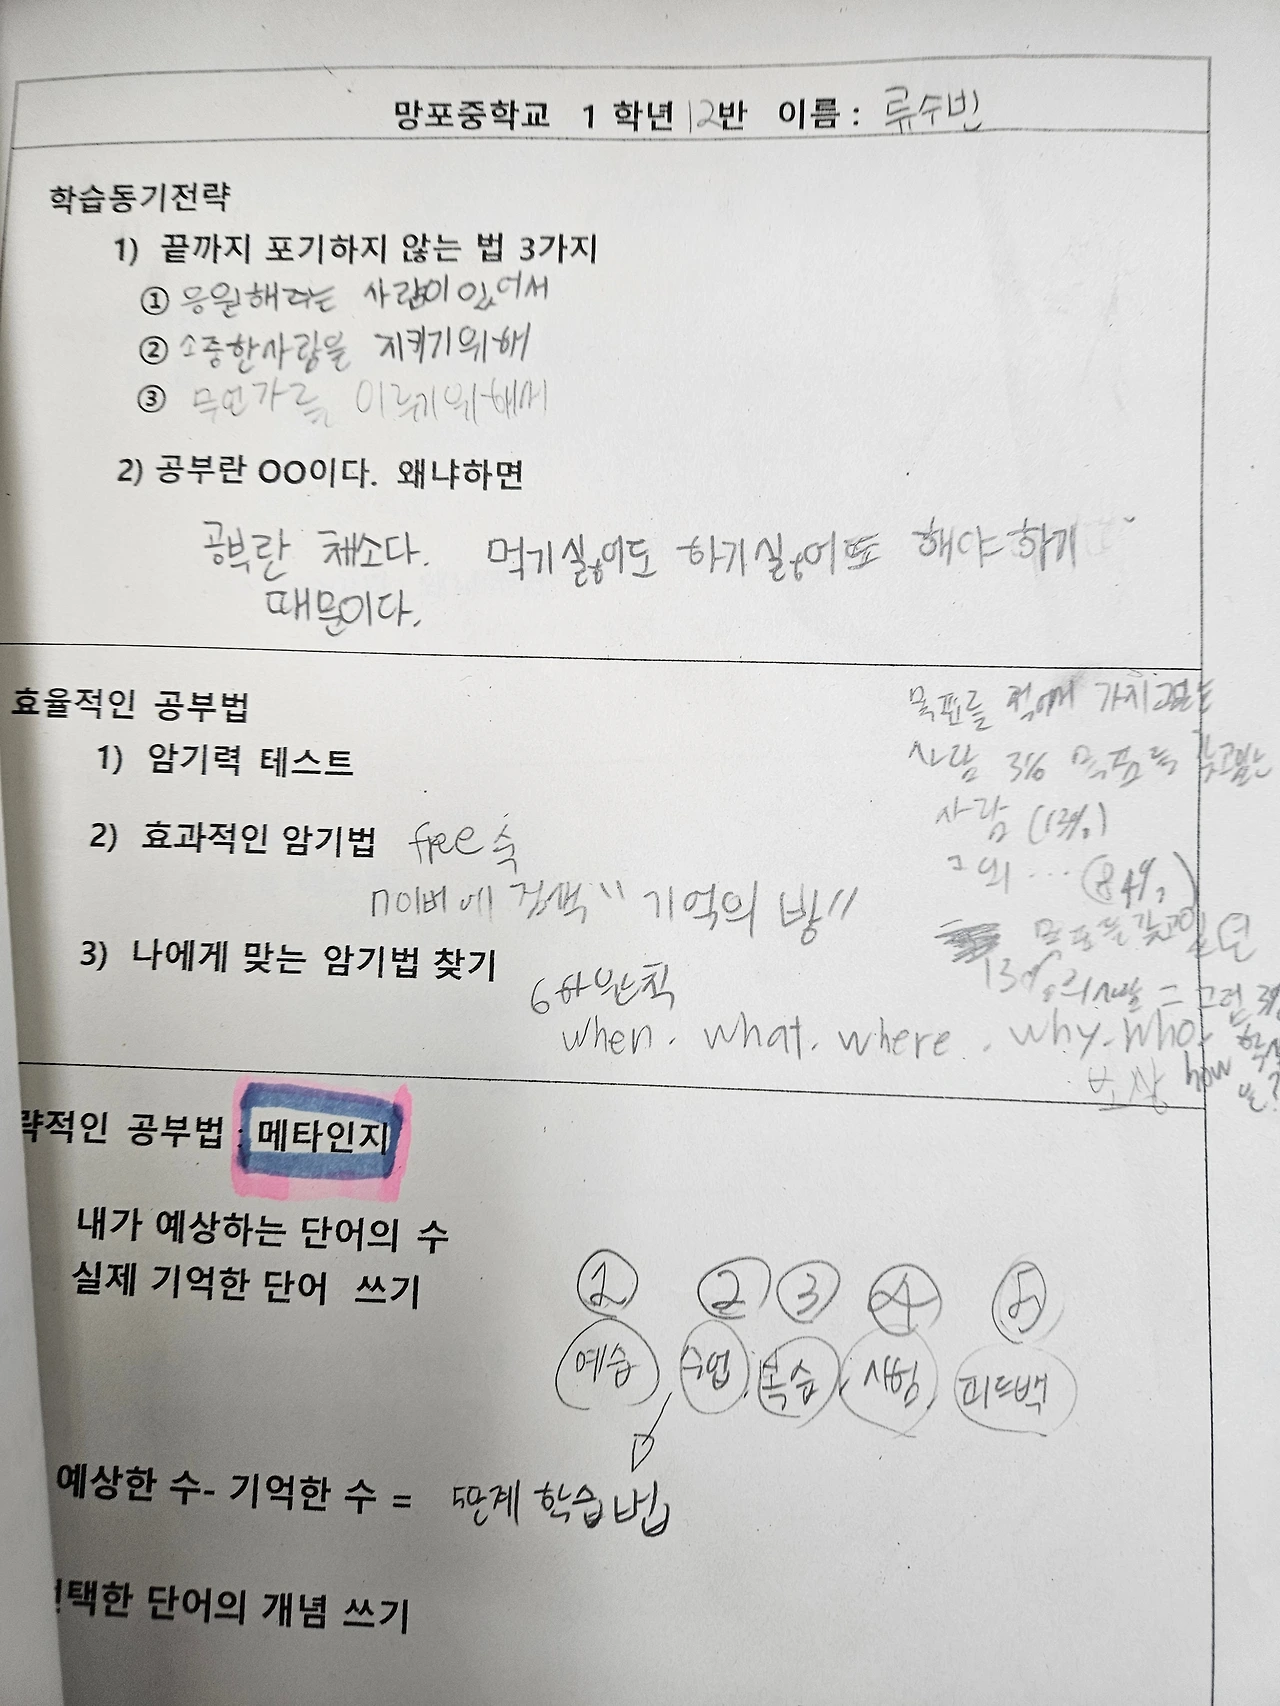 망포중학교 1 학년 12반 이름 : 류수빈
학습동기전략
1) 끝까지 포기하지 않는 법 3가지
① 응원해주는 사람이 있어서
② 소중한사람을 지키기위해
③ 무언가를 이루기위해서
2) 공부란 OO이다. 왜냐하면
공부란 채소다. 먹기싫어도 하기싫어도 해야하기
때문이다.
효율적인 공부법
1) 암기력 테스트
2) 효과적인 암기법 free 속
네이버에 검색 "기억의 방"
3) 나에게 맞는 암기법 찾기
6하원칙
when. what. where. why. who.
how
보상
목표를 적어서 가지고있는
사람 3% 목표를 갖고있는
사람 (13%)
그 외 ... (84%)
목표를 갖고있던
13%의
략적인 공부법 : 메타인지
내가 예상하는 단어의 수
실제 기억한 단어 쓰기
① ② ③ ④ ⑤
예습 수업 복습 시험 피드백
예상한 수- 기억한 수 = 5단계 학습법
택한 단어의 개념 쓰기